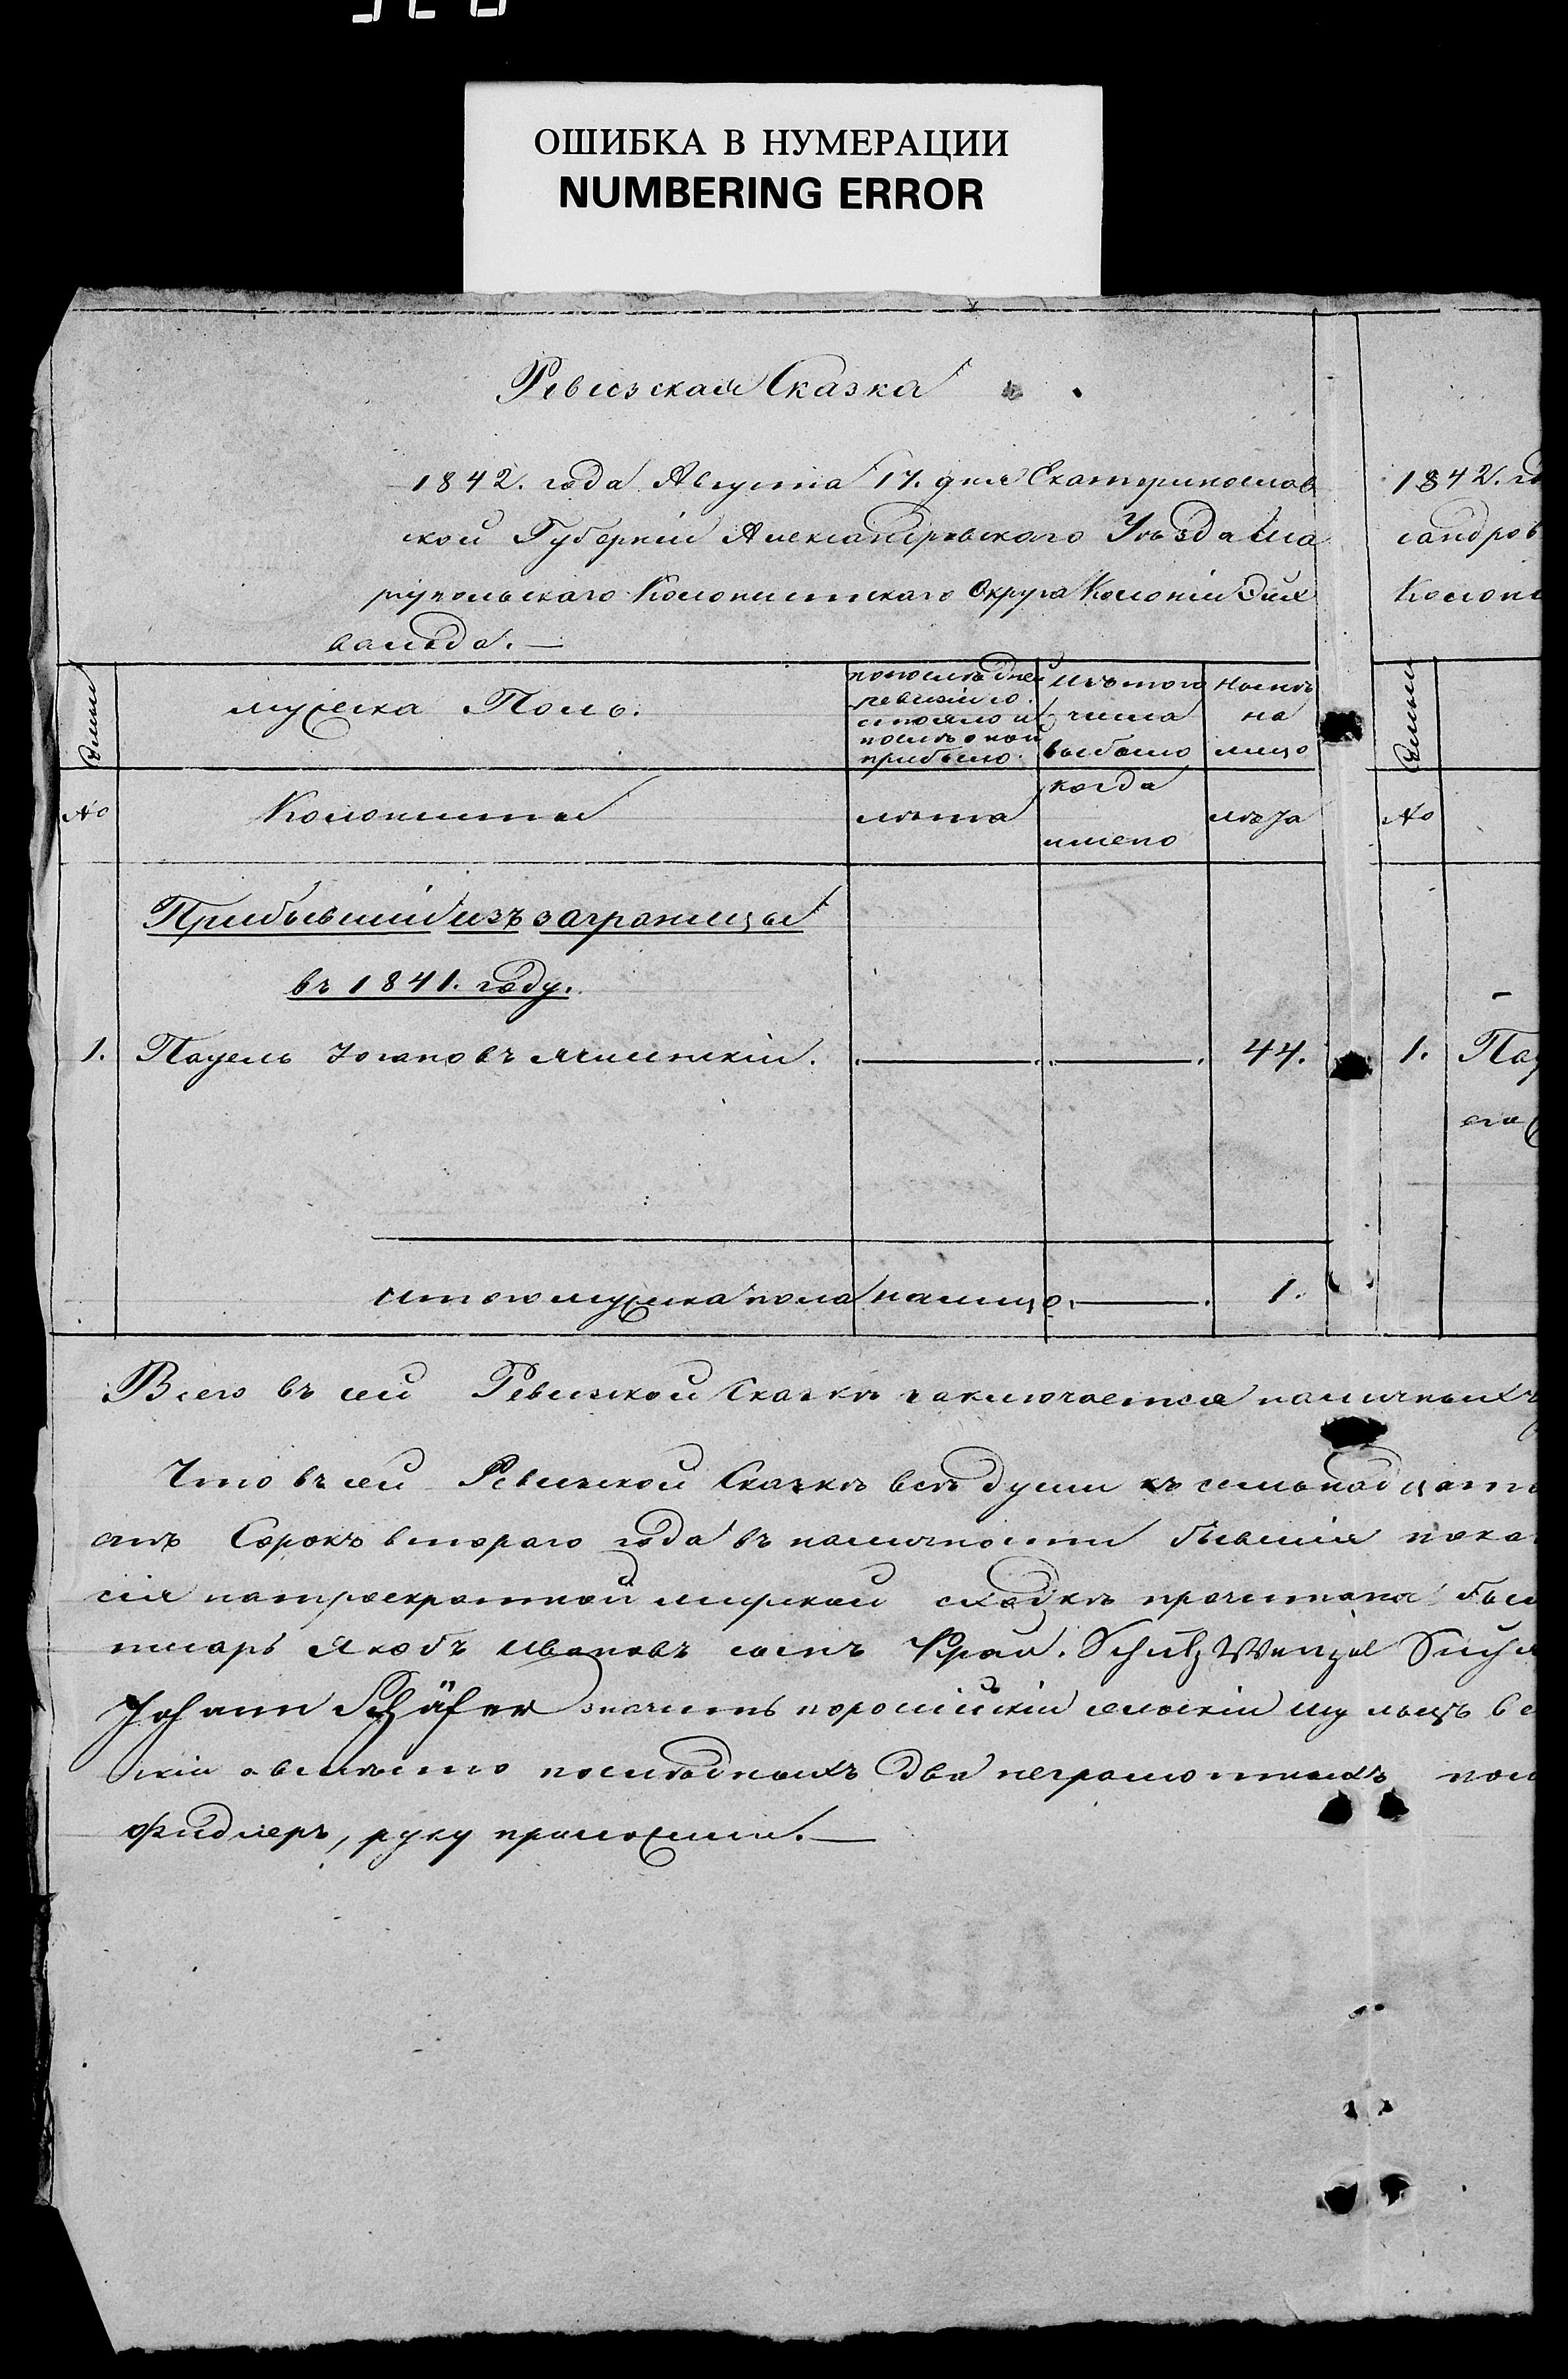 ОШИБКА В НУМЕРАЦИИ
NUMBERING ERROR
Ревизская Сказка
1842. года Августа 17. дня Екатеринослав
ской Губерніи Александровскаго Уѣзда Ма
ріупольскаго Колонистскаго Округа Колоніи Эйх
вальда. —
1842. го
сандров
Колони
Семьи
мужеска Полъ.
по послѣдней
ревизіи со
стояло и
послѣ оной
прибыло.
изъ того
числа
выбыло
нынѣ
на
лицо
Семьи
№
Колонисты
лѣта
когда
имено
лѣта
№
Прибывшій изъ заграницы
въ 1841. году.
1. Пауель Іогановъ . — . . — . 44.
1. Пау
его
итого мужеска пола на лицо. — . 1.
Всего въ сей Ревизской Сказкѣ заключается наличныхъ
Что въ сей Ревизской Сказкѣ всѣ души къ семьнадцато
отъ Сорокъ втораго года въ наличности бывшія пока
сія на троекратной мирской сходкѣ прочитана был
писарь Якобъ Ивановъ сынъ Край. Schulz Wenzel
Johann Schäfer значитъ по россійскій сельскій Шульцъ Ве
скій а вмѣсто послѣдныхъ два неграмотныхъ
Фидлеръ, руку приложили. —
ЦѢНА 30